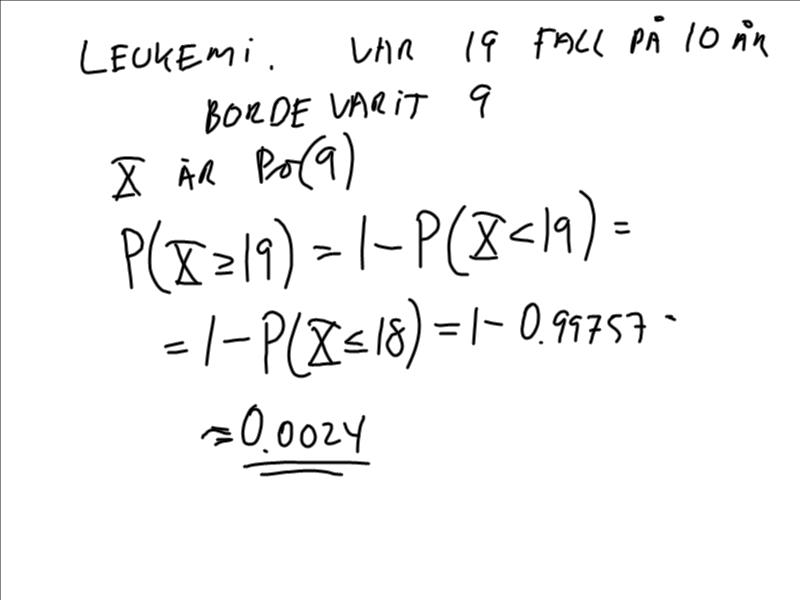 LEUKEMI. VAR 19 FALL PÅ 10 ÅR
BORDE VARIT 9
X ÄR Po(9)
P(X≥19) = 1-P(X<19) =
= 1-P(X≤18) = 1- 0.99757 =
≈ 0.0024